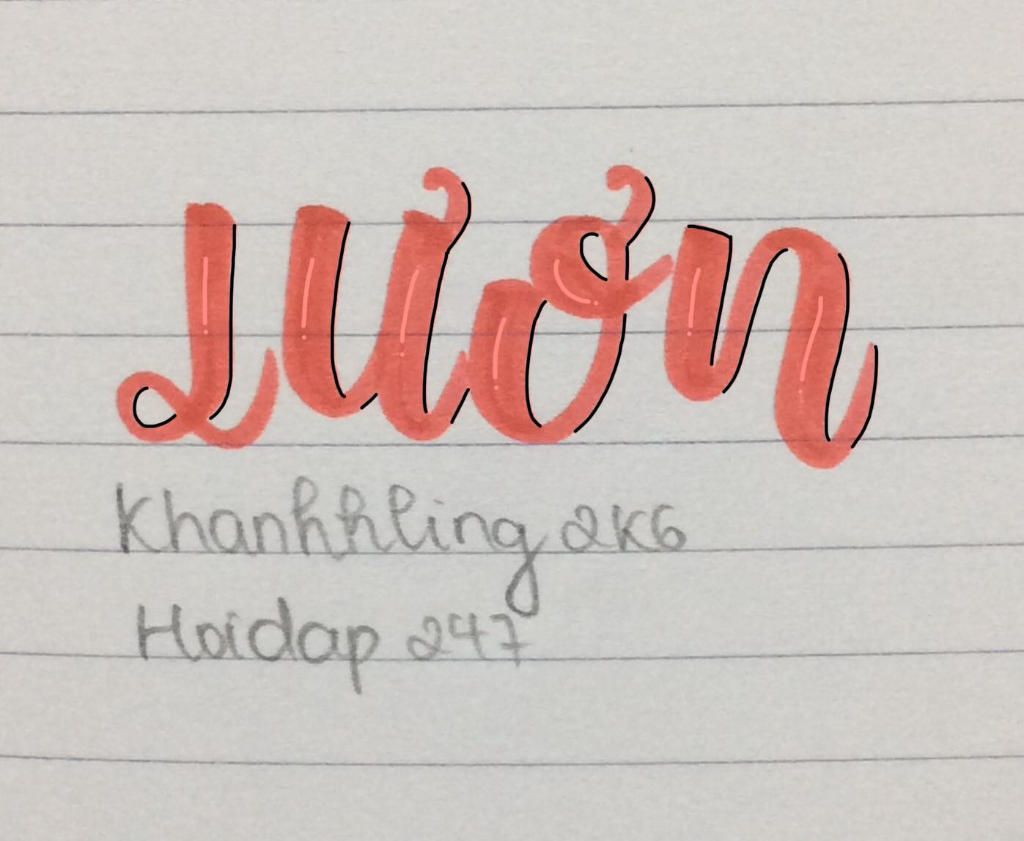 Lươn
Khanhhling 2K6
Hoidap 247